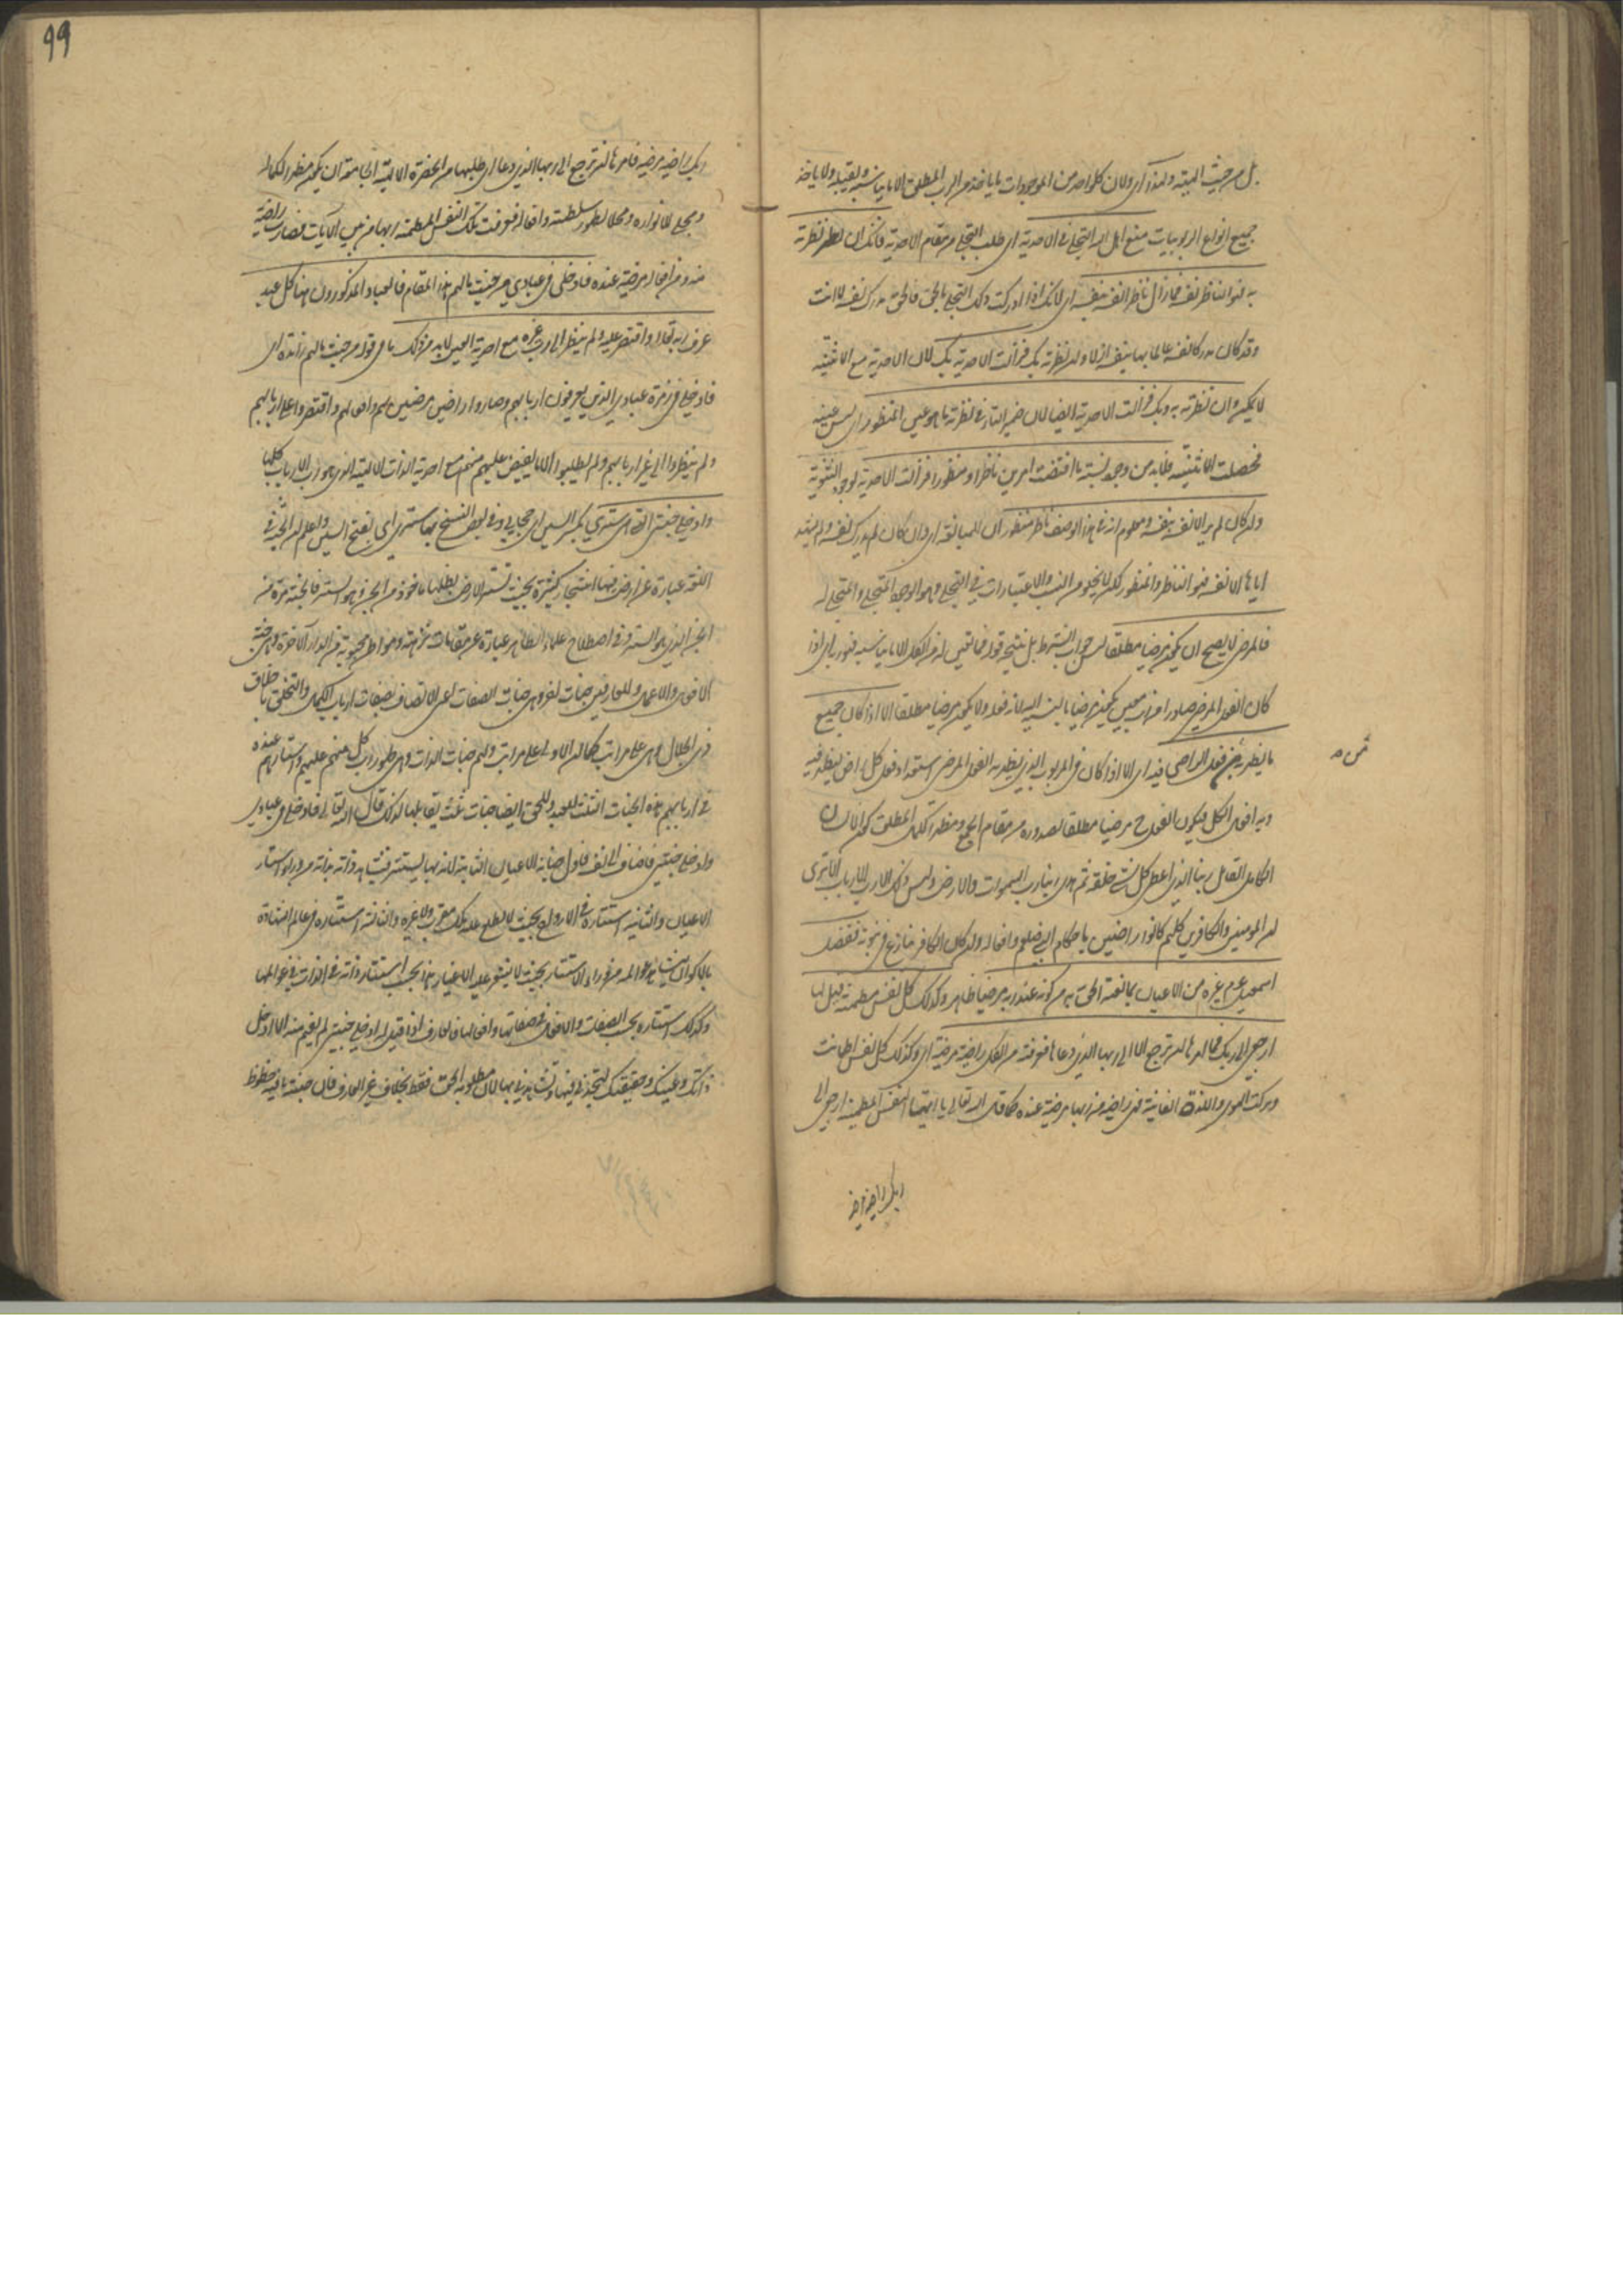 بل من حيث الهيته ولهذا اى ولان كل واحد من الموجودات ما ياخذ من الرب المطلق الا ما يناسبه ويقبله ولا ياخذ
جميع انواع الربوبيات منع اهل الله التجلى فى الاحدية اى طلب التجلى من مقام الاحدية فانك ان نظرته نظرته
به فهو الناظر نفسه فما زال ناظرا نفسه بنفسه اى لانك اذا ادركت ذلك التجلى بالحق فالحق مدرك نفسه لا انت
وقد كان مدركا نفسه عالما بها بنفسه ازلا وان نظرته بك فزالت الاحدية بك لان الاحدية مع الاثنينية
لا يمكن وان نظرته به وبك فزالت الاحدية ايضا لان ضمير التاء فى نظرته ما هو عين المنظور اى ليس عينه
فحصلت الاثنينية فلا بد من وجود نسبة ما اقتضت امرين ناظرا ومنظورا فزالت الاحدية لوجود الثنوية
وان كان لم ير الا نفسه بنفسه ومعلوم انه فى هذا الوصف ناظر منظور ان للمبالغة اى وان كان لم يدرك نفسه ولم يشهد
اياها الا نفسه فهو الناظر والمنظور لكن لا يخلو من النسب والاعتبارات فى التجلى وهو الوجه المتجلى والمتجلى له
فالمرضى لا يصح ان يكون مرضيا مطلقا ليس جواب الشرط بل نتيجة قوله فما تعين له من الكل الا ما يناسبه فهو ربه اى اذا
كان الفعل المرضى صادرا من رب معين يكون مرضيا بالنسبة اليه لانه فعله ولا يكون مرضيا مطلقا الا اذا كان جميع
ما يظهر به من فعل الراضى فيه اى الا اذا كان فى المربوب الذى يظهر به الفعل المرضى استعداد فعل كل راض ليظهر فيه
وبه افعال الكل فيكون الفعل ح مرضيا مطلقا لصدوره من مقام الجمع ومظهر الكمل المطلق كون الانسان
الكامل القائل ربنا الذى اعطى كل شئ خلقه ثم هدى ربنا رب السموات والارض وليس ذلك الا رب الارباب الا ترى
ان المومنين والكافرين كلهم كانوا راضين باحكام النبى صلعم وافعاله وان كان الكافر ينازع فى نبوته ففضل
اسمعيل عم غيره من الاعيان بما نعته الحق به من كونه عند ربه مرضيا ظاهر وكذلك كل نفس مطمئنة قيل لها
ارجعى الى ربك فما امرها ان ترجع الا الى ربها الذى دعاها فعرفته من الكل راضية مرضية اى وكذلك كل نفس اطمانت
وتركت الهوى واللذة الفانية فهى راضية من ربها مرضية عنده كما قال الله تعالى يا ايتها النفس المطمئنة ارجعى الى
ربك راضية مرضية
99
ربك راضية مرضية فامرها ان ترجع الى ربها الذى دعا اى طلبها من الحضرة الالهية الجامعة ان يكون مظهرا لكماله
ومجلى لانواره ومحلا لظهور سلطنته وافعاله فعرفت تلك النفس المطمئنة ربها من بين الارباب فصارت راضية
منه ومن افعاله مرضية عنده فادخلى فى عبادى من حيث ما لهم هذا المقام فالعباد المذكورون هنا كل عبد
عرف ربه تعالى واقتصر عليه ولم ينظر الى رب غيره مع احدية العين لابد من ذلك ما فى قوله من حيث ما لهم زائدة اى
فادخلى فى زمرة عبادى الذين يعرفون اربابهم وصاروا راضين مرضيين لهم وافعالهم واقتصروا على اربابهم
ولم ينظروا الى غير اربابهم ولم يطلبوا الا ما يفيض عليهم منهم مع احدية الذات الالهية الذى هو رب الارباب كلها
وادخلى جنتى التى هى سترى بكسر السين اى حجابى وفى بعض النسخ بها سترى اى بفتح السين واعلم ان الجنة فى
اللغة عبارة عن ارض فيها اشجار كثيرة بحيث تستر الارض بظلها ماخوذ من الجن وهو الستر فالجنة مرة من
الجن الذى هو الستر وفى اصطلاح علماء الظاهر عبارة عن مقامات نزهة ومواطن محبوبة فى الدار الاخرة وهى جنة
الافعال والاعمال وللعارفين جنات اخر وهى جنات الصفات اعنى الاتصاف بصفات ارباب الكمال والتخلق باخلاق
ذى الجلال وهى على مراتب كما ان الاولى على مراتب ولهم جنات الذات وهى ظهور رب كل منهم عليهم واستتارهم عنده
فى اربابهم هذه الجنات الثلث للعبد وللحق ايضا جنات ثلث يقابلها لذلك قال الله تعالى فادخلى فى عبادى
وادخلى جنتى فاضاف الى نفسه فاول جناته الاعيان الثابتة لانه بها يستتر فيشاهد ذاته بذاته من وراء استار
الاعيان والثانية استتاره فى الارواح بحيث لا يطلع عليه ملك مقرب ولا غيره والثالثة استتاره فى عالم الشهادة
بالاكوان ليشاهد عوالمه من وراء الاستار بحيث لا يشعر عليه الاغيار هذا بحسب استتار ذاته فى الذات فى عوالمها
وكذلك استتاره بحسب الصفات والافعال فى صفاتها وافعالها فالعارف اذا قيل له ادخلى جنتى لم يفهم منه الا ادخل
ذاتك وعينك وحقيقتك لتجدنى فيها وتشاهدنى بها لان مطلوبه الحق فقط بخلاف غير العارف فان جنته ما فيه حظوظ